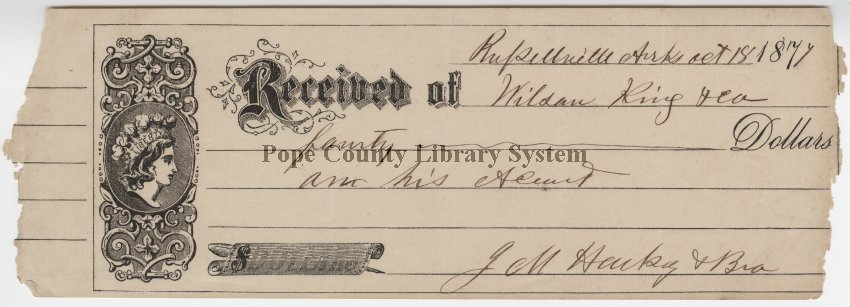 Russellville Arks oct 18 1877
Received of Wilson King & co
fourty Dollars
Pope County Library System
on his Acount
$
J M Harkey & Bro